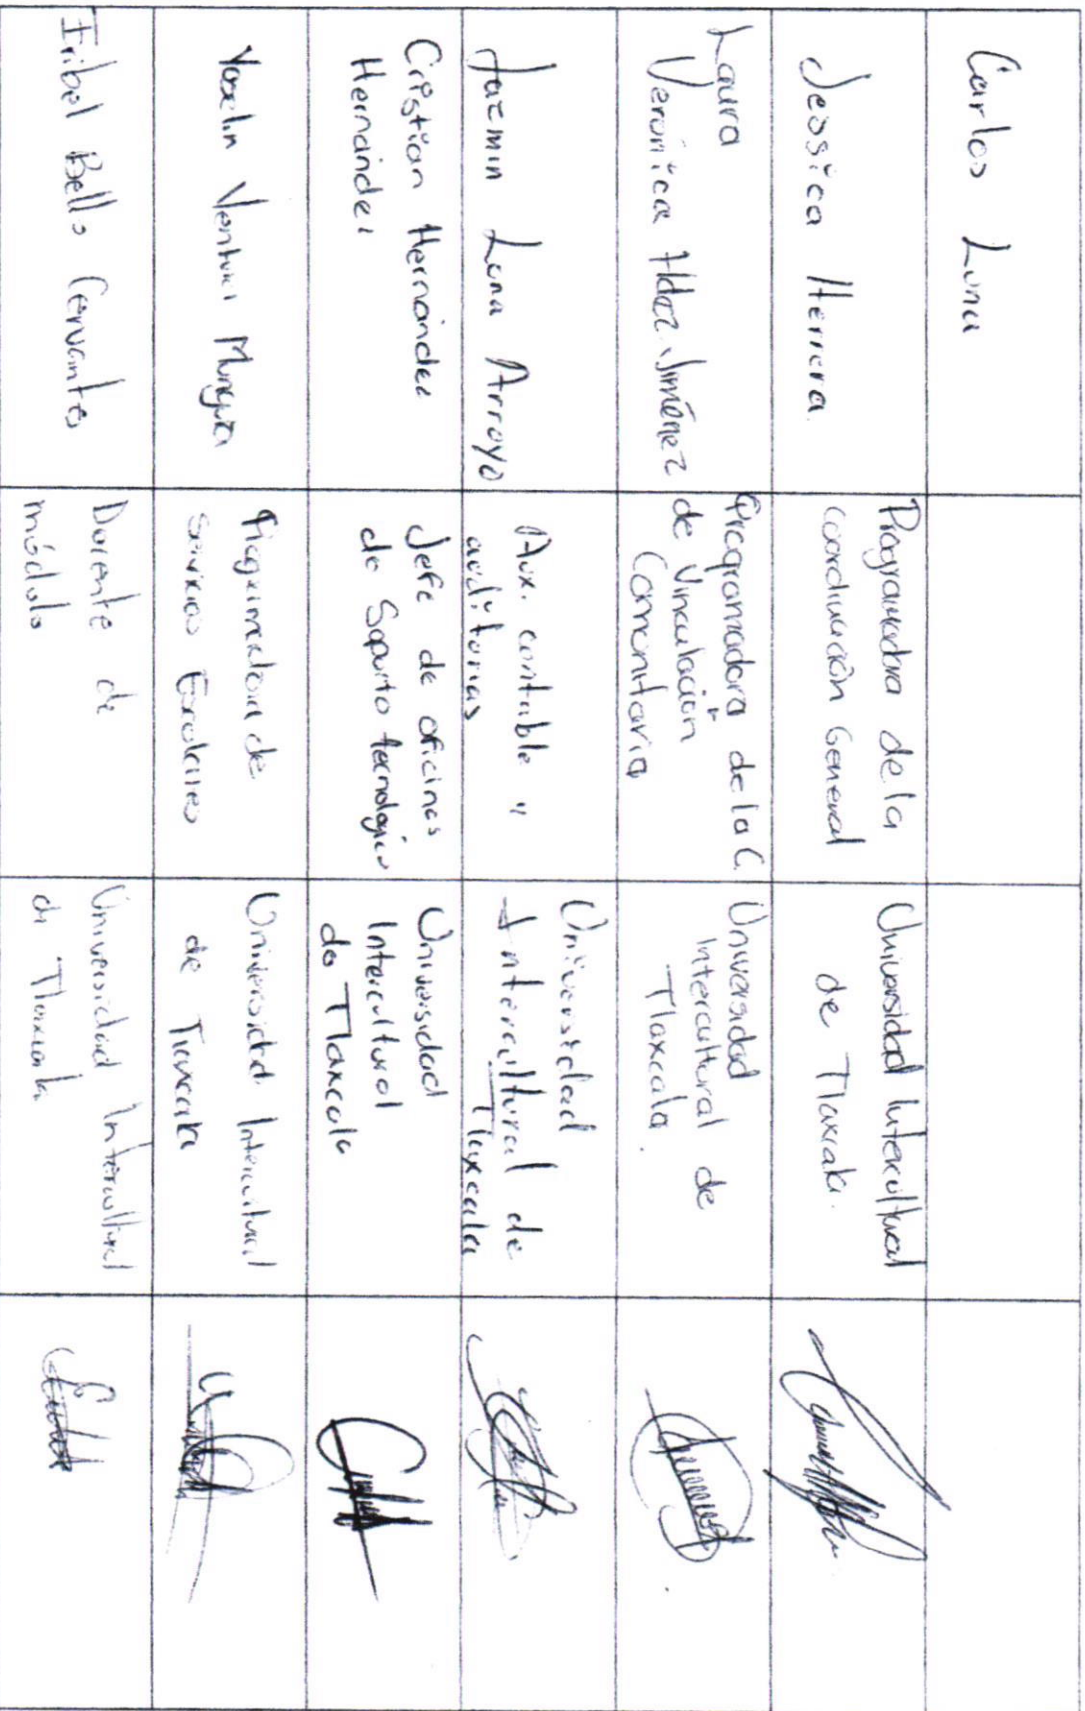 Carlos Luna
Jessica Herrera.
Programadora de la
Coordinación General
Universidad Intercultural
de Tlaxcala.
Laura
Verónica Hdez. Jiménez
Programadora de la C.
de Vinculación
Comunitaria
Universidad
Intercultural de
Tlaxcala.
Jazmin Luna Arroyo
Aux. contable y
auditorias
Universidad
Intercultural de
Tlaxcala
Cristian Hernández
Hernández
Jefe de oficinas
de Soporto tecnologico
Universidad
Intercultural
de Tlaxcala
Yoselin Ventura Munguia
Programadora de
Servicios Escolares
Universidad Intercultural
de Tlaxcala
Iribel Bello Cervantes
Docente de
módulo
Universidad Intercultural
de Tlaxcala